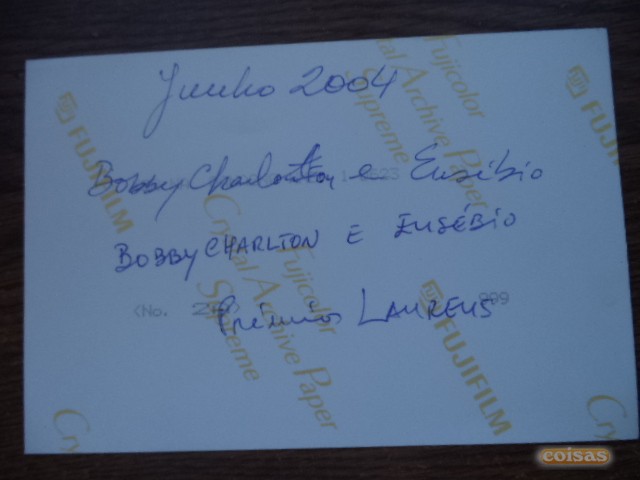 Junho 2004
Bobby Charlton e Eusébio
BOBBY CHARLTON E EUSÉBIO
<No.
Prémios LAUREUS
FUJIFILM
Fujicolor
Crystal Archive Paper
Supreme
FUJIFILM
Fujicolor
Crystal Archive Paper
Supreme
FUJIFILM
coisas